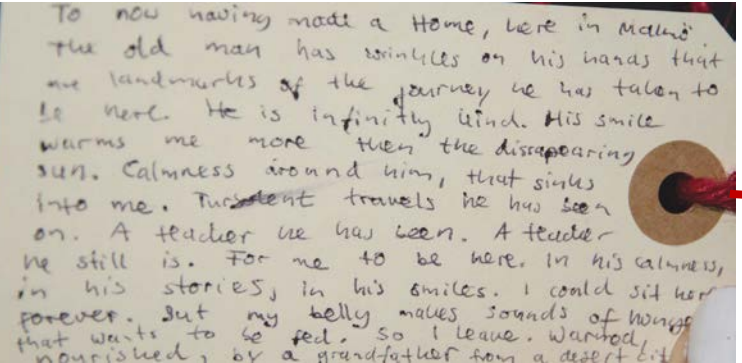 To now having made a Home, here in Malmö.
The old man has wrinkles on his hands that
are landmarks of the journey he has taken to
be here. He is infinitly kind. His smile
warms me more then the dissapearing
sun. Calmness around him, that sinks
into me. Turbulent travels he has been
on. A teacher he has been. A teacher
he still is. For me to be here. In his calmness,
in his stories, in his smiles. I could sit here
forever. But my belly makes sounds of hunger
that wants to be fed. So I leave. Warmed,
nourished, by a grandfather from a desert city